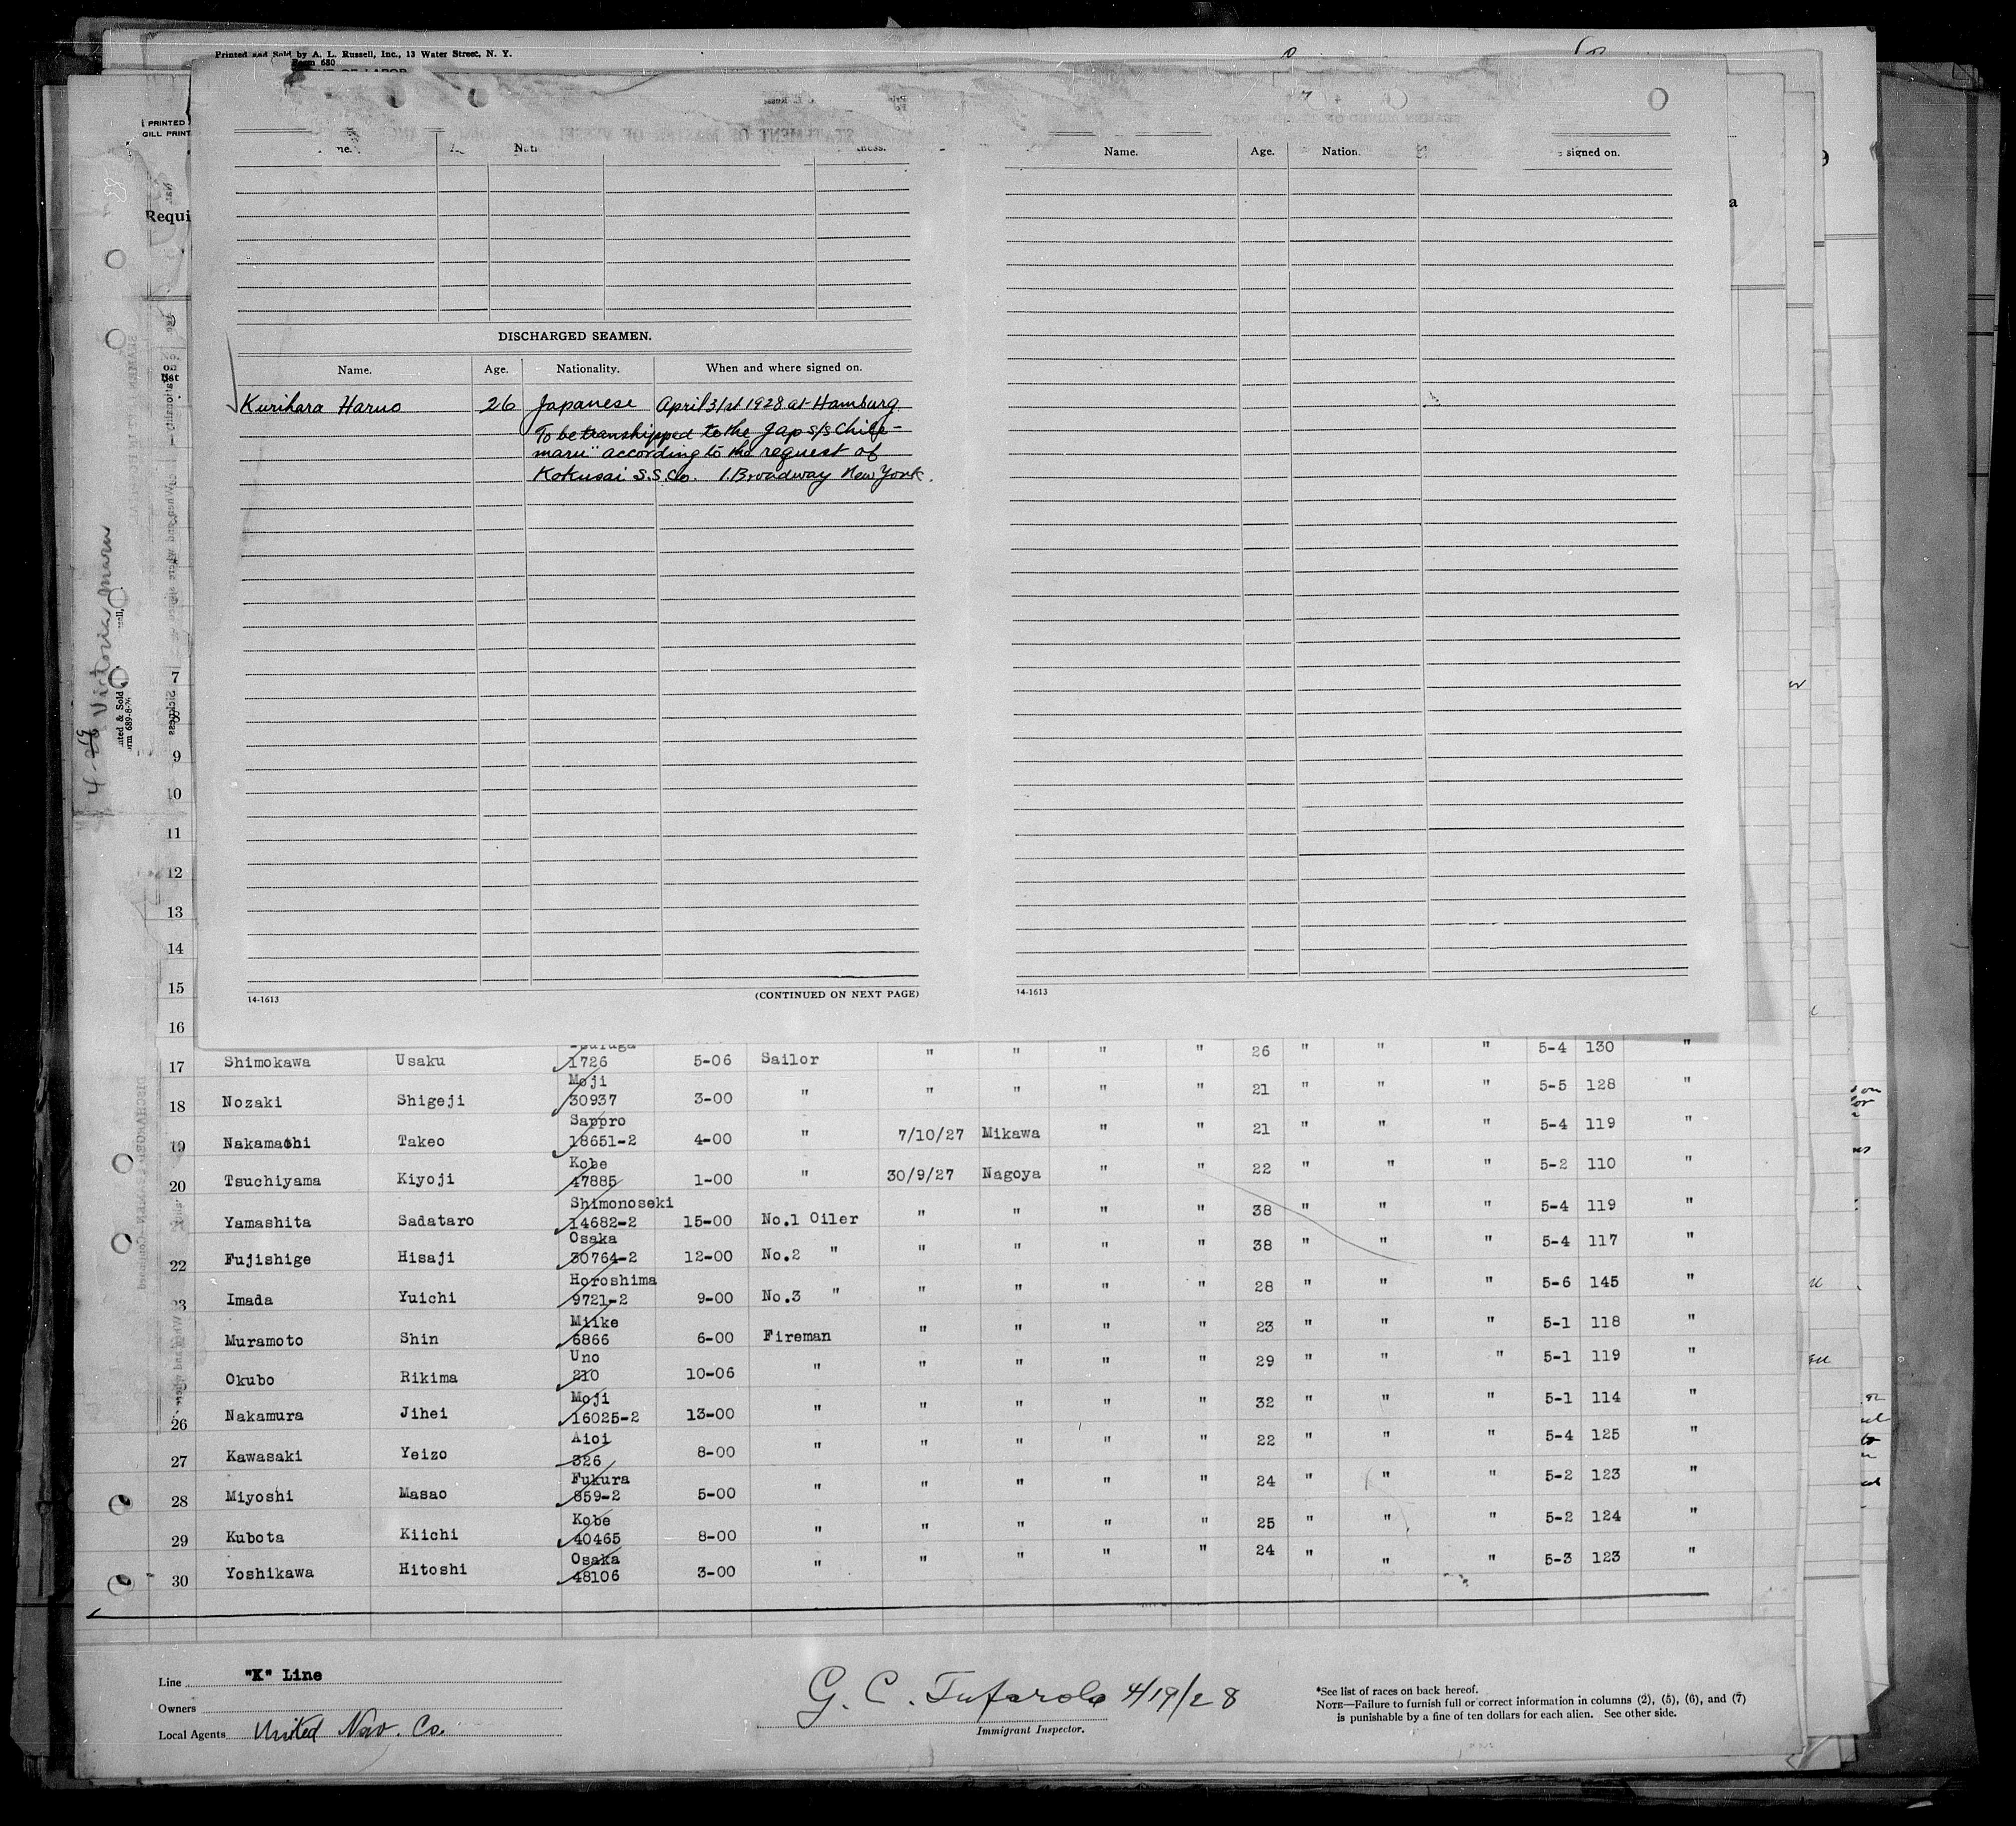 Printed and Sold by A. L. Russell, Inc., 13 Water Street, N. Y.
Form 680
PRINTED
GILL PRINT
Requi
Name. Age. Nation. signed on.
DISCHARGED SEAMEN.
Name. Age. Nationality. When and where signed on.
Kurihara Haruo 26 Japanese April 31st 1928 at Hamburg
To be transhipped to the Jap s/s Chile-
maru" according to the request of
Kokusai S.S.Co. 1. Broadway New York.
14-1613 (CONTINUED ON NEXT PAGE) 14-1613
4-19 Victoria Maru
7
8
9
10
11
12
13
14
15
16
17 Shimokawa Usaku 1726 5-06 Sailor " " " " 26 " " " 5-4 130 "
18 Nozaki Shigeji Moji 30937 3-00 " " " " " 21 " " " 5-5 128 "
19 Nakamachi Takeo Sappro 18651-2 4-00 " 7/10/27 Mikawa " " 21 " " " 5-4 119 "
20 Tsuchiyama Kiyoji Kobe 47885 1-00 " 30/9/27 Nagoya " " 22 " " " 5-2 110 "
Yamashita Sadataro Shimonoseki 14682-2 15-00 No.1 Oiler " " " " 38 " " " 5-4 119 "
22 Fujishige Hisaji Osaka 30764-2 12-00 No.2 " " " " " 38 " " " 5-4 117 "
23 Imada Yuichi Horoshima 9721-2 9-00 No.3 " " " " " 28 " " " 5-6 145 "
Muramoto Shin Miike 6866 6-00 Fireman " " " " 23 " " " 5-1 118 "
Okubo Rikima Uno 210 10-06 " " " " " 29 " " " 5-1 119 "
26 Nakamura Jihei Moji 16025-2 13-00 " " " " " 32 " " " 5-1 114 "
27 Kawasaki Yeizo Aioi 326 8-00 " " " " " 22 " " " 5-4 125 "
28 Miyoshi Masao Fukura 859-2 5-00 " " " " " 24 " " " 5-2 123 "
29 Kubota Kiichi Kobe 40465 8-00 " " " " " 25 " " " 5-2 124 "
30 Yoshikawa Hitoshi Osaka 48106 3-00 " " " " " 24 " " " 5-3 123 "
Line "K" Line
Owners
Local Agents United Nav. Co.
G. C. Tufarolo 4/19/28
Immigrant Inspector.
*See list of races on back hereof.
NOTE—Failure to furnish full or correct information in columns (2), (5), (6), and (7)
is punishable by a fine of ten dollars for each alien. See other side.